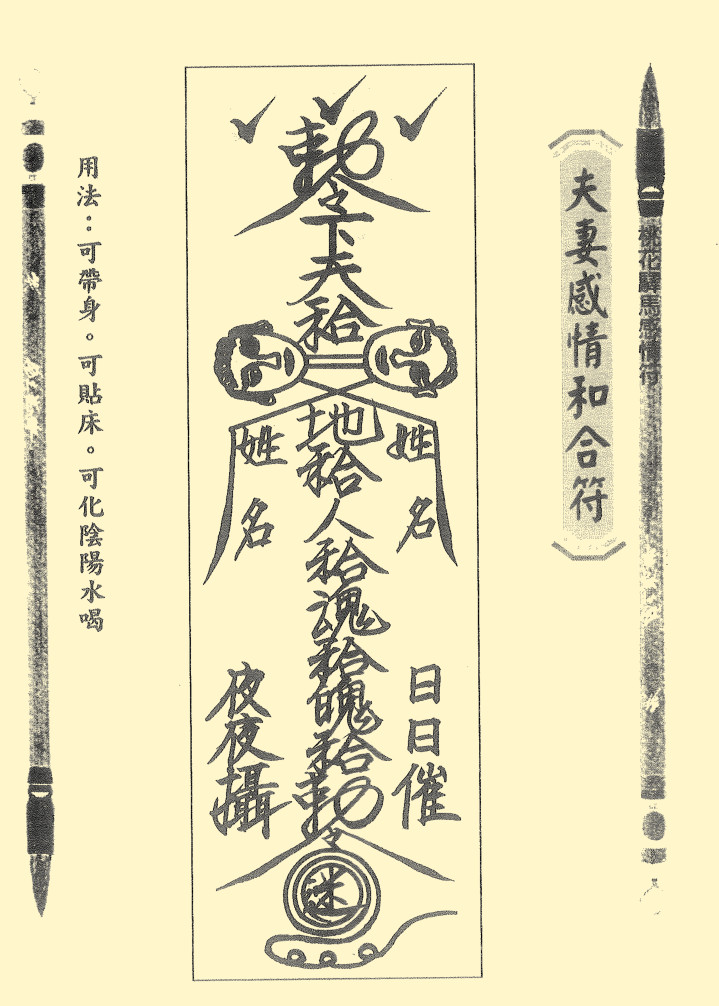 桃花驛馬感情符
夫妻感情和合符
姓名
日日催
勅令下天秴地秴人秴魂秴魄秴勅令
姓名
夜夜攝
用法：可帶身。可貼床。可化陰陽水喝